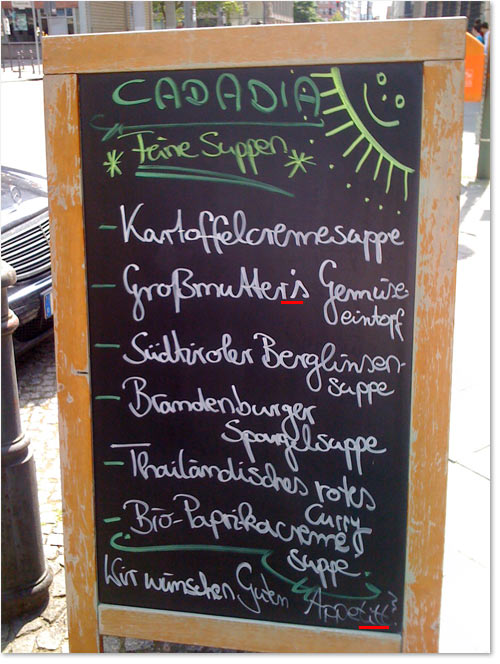 CADADIA
* Feine Suppen *
- Kartoffelcremesuppe
- Großmutter's Gemüse-
eintopf
- Südtiroler Berglinsen-
suppe
- Brandenburger
Spargelsuppe
- Thailändisches rotes
Curry
- Bio-Paprikacreme
suppe
Wir wünschen Guten Appetitt